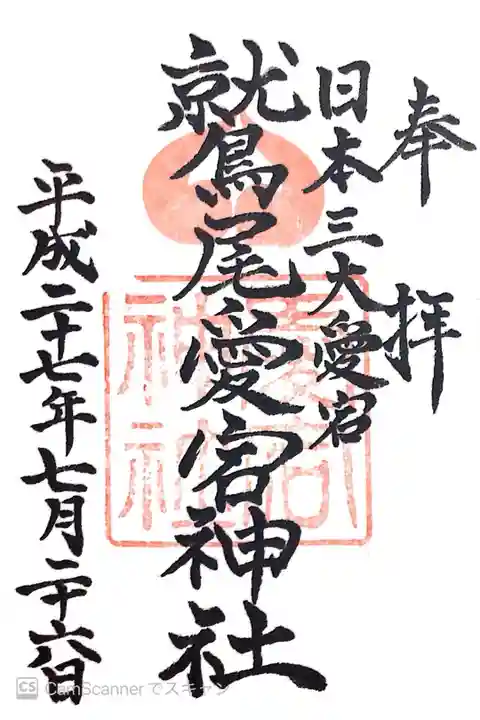 奉拝
日本三大愛宕
鷲尾愛宕神社
愛宕神社
平成二十七年七月二十六日
CS CamScannerでスキャン